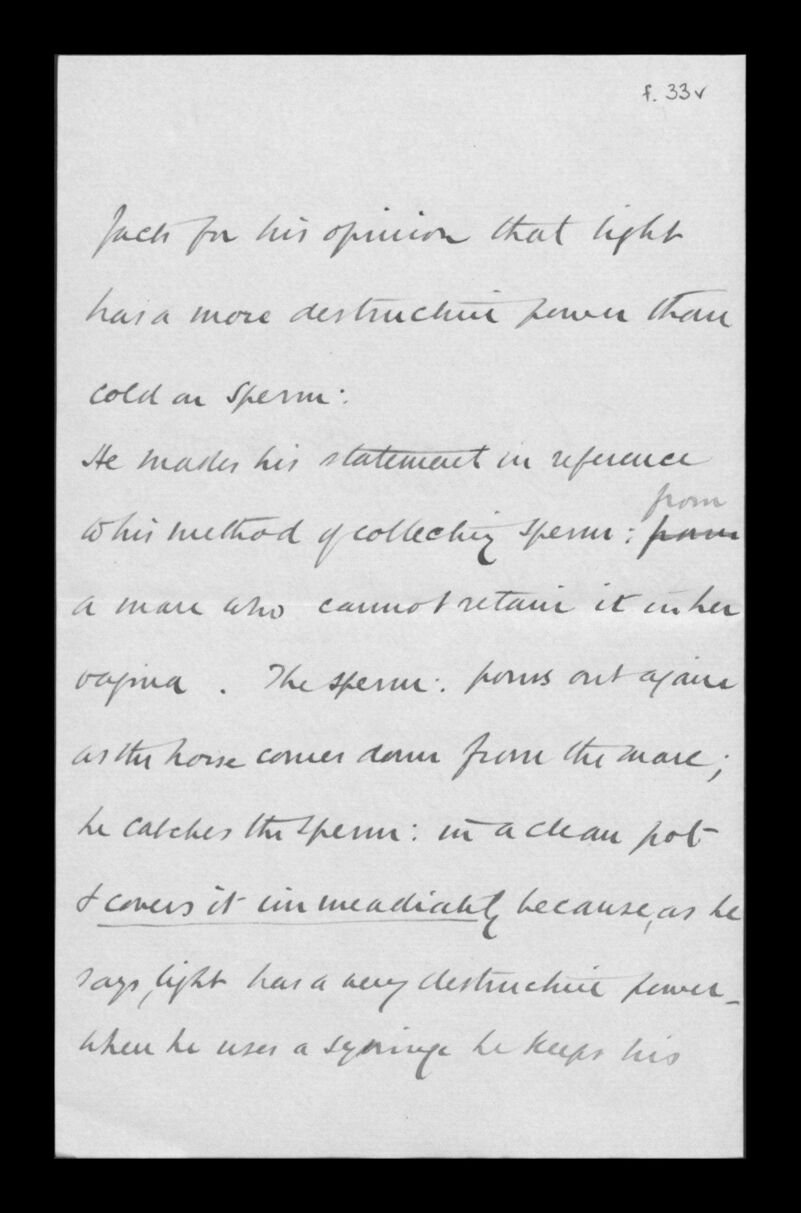 f. 33v
facts for his opinion that light
has a more destructive power than
cold on sperm:
He makes his statement in reference
to his method of collecting sperm: from
from
a mare who cannot retain it in her
vagina. The sperm: pours out again
as the horse comes down from the mare;
he catches the sperm: in a clean pot
& covers it immeadiately because, as he
says, light has a very destructive power_
when he uses a syringe he keeps his